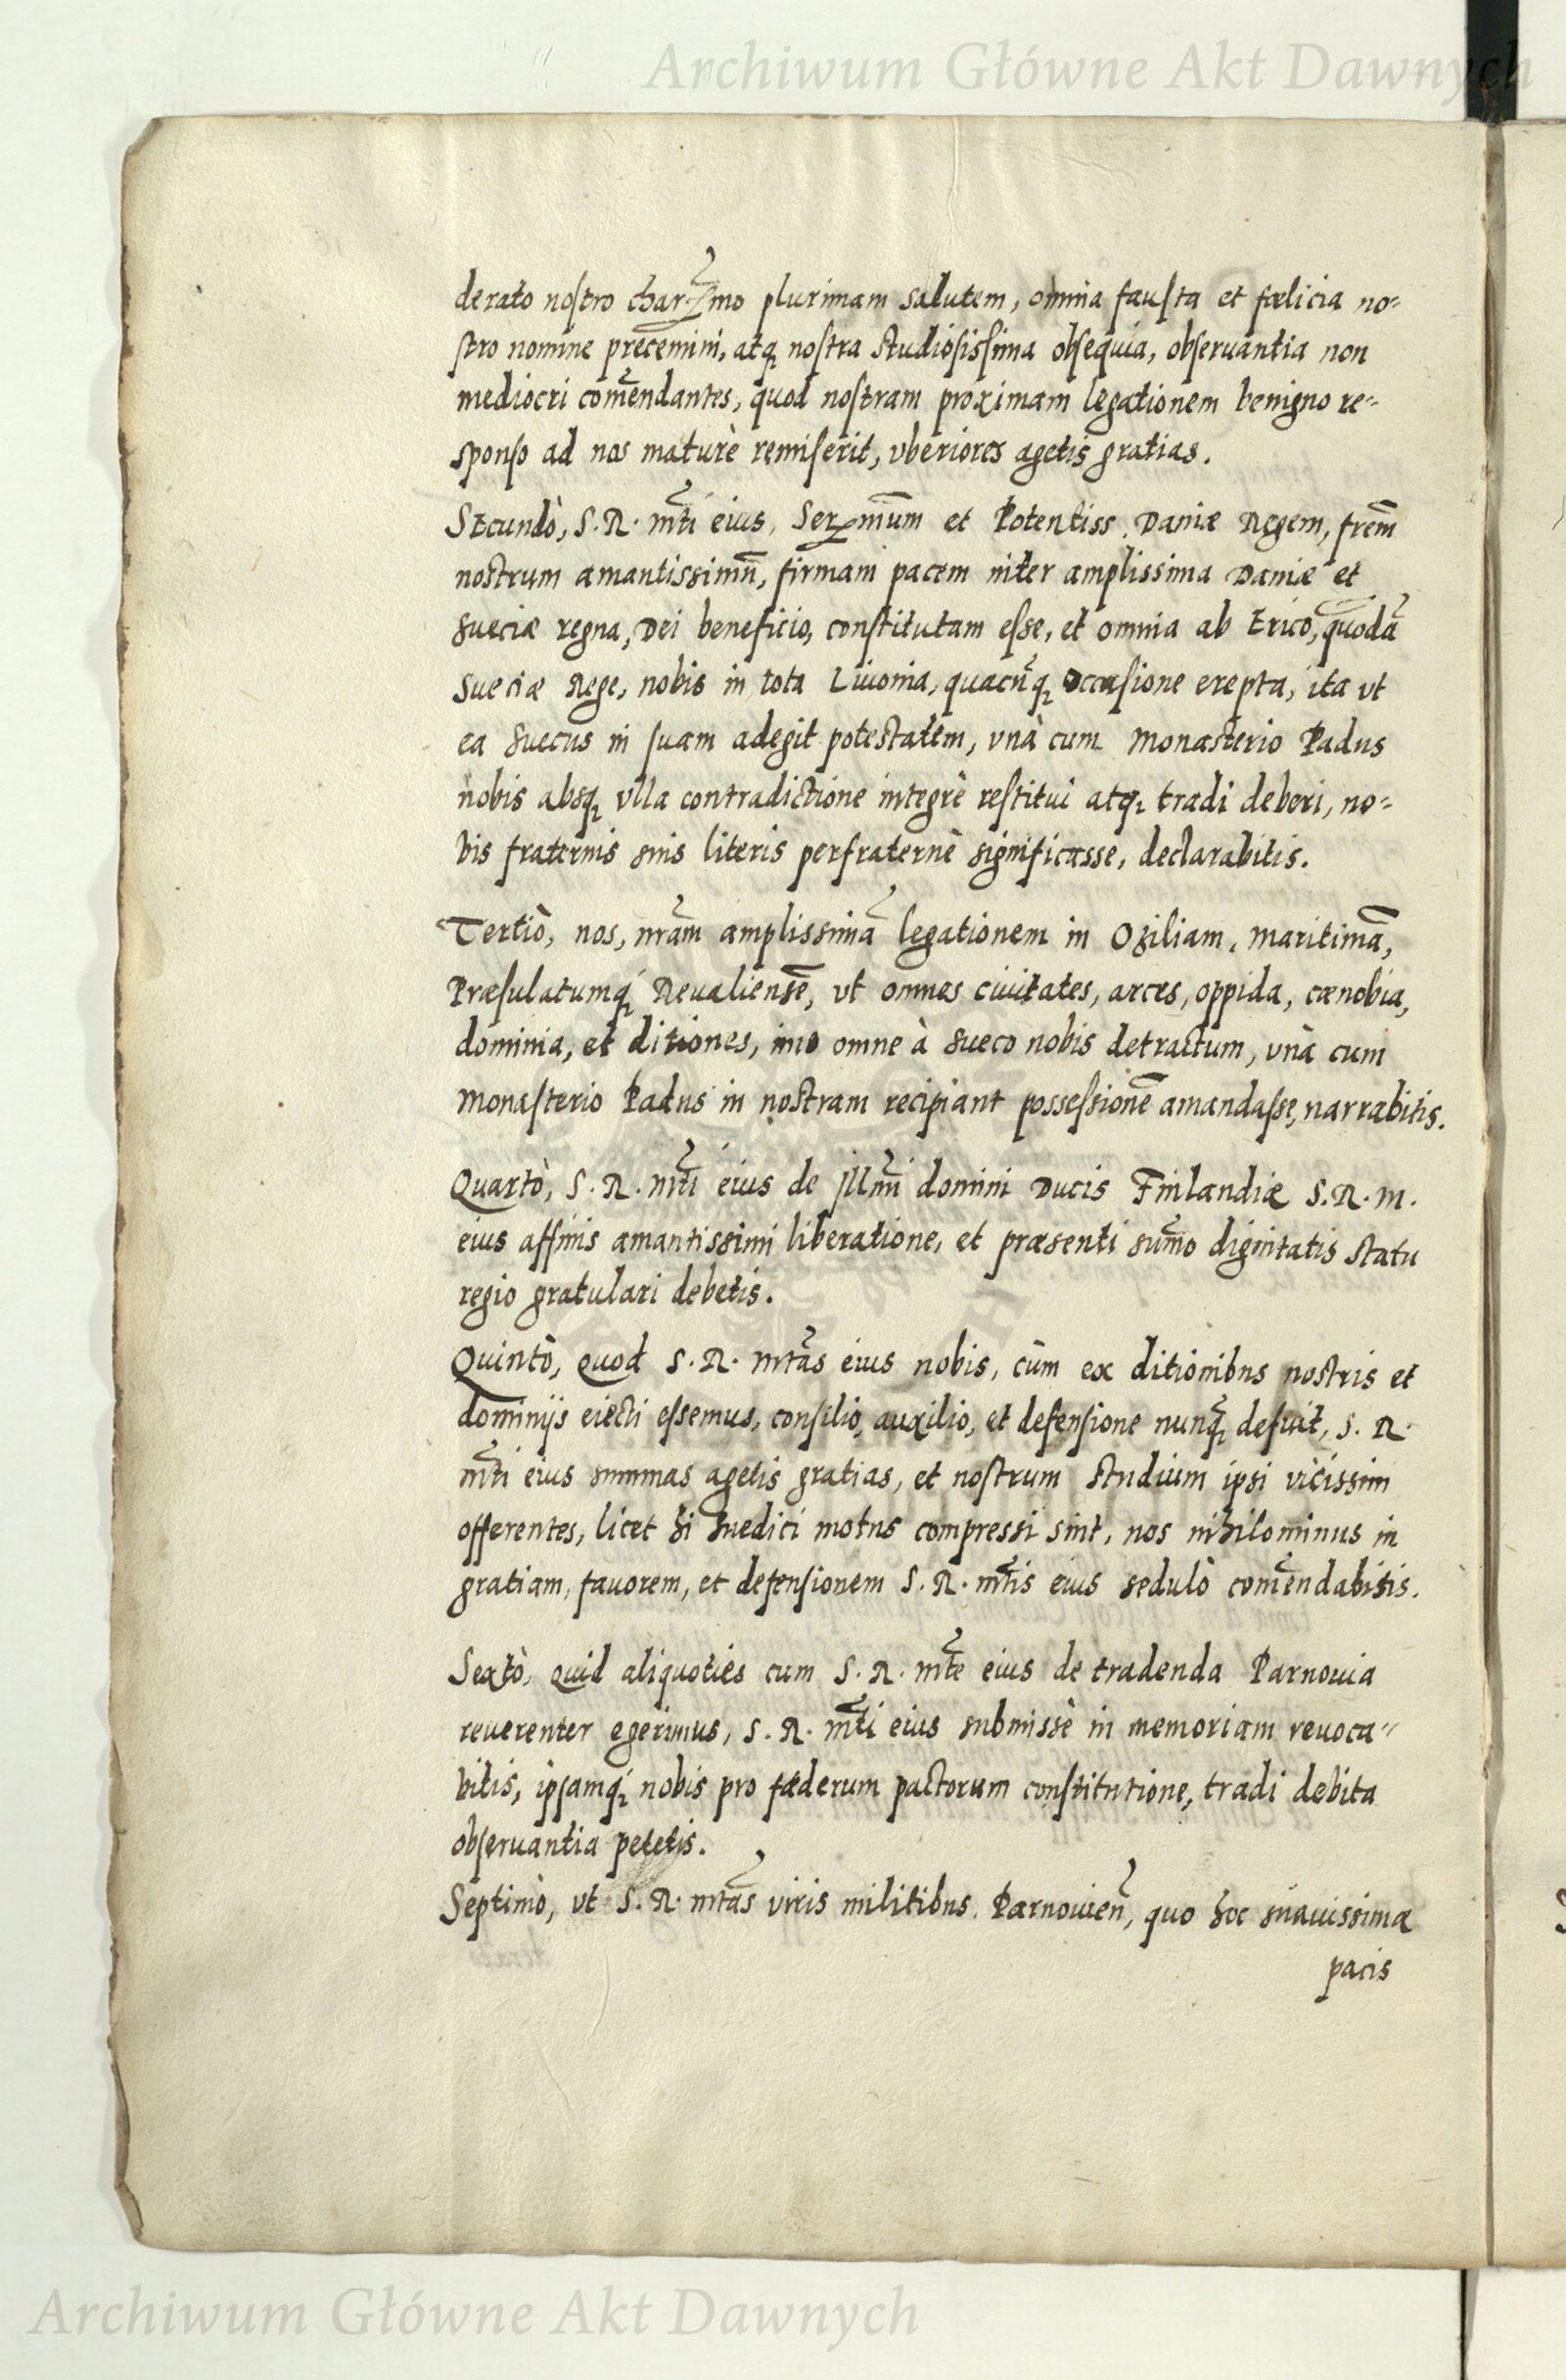 Archiwum Główne Akt Dawnych
derato nostro charissmo plurimam salutem, omnia fausta et fœlicia no=
stro nomine precemini, atq; nostra studiosissima obsequia, obseruantia non
mediocri com̃endantes, quod nostram proximam legationem benigno re=
sponso ad nos maturè remiserit, vberiores agetis gratias.
Secundò, S. R. mti eius, Sermum et Potentiss. Daniæ Regem, frem
nostrum amantissimũ, firmam pacem inter amplissima Daniæ et
Sueciæ regna, Dei beneficio, constitutam esse, et omnia ab Erico, quodã
Sueciæ Rege, nobis in tota Liuonia, quacũq; occasione erepta, ita vt
ea Suecus in suam adegit potestatem, vnà cum Monasterio Padus
nobis absq; vlla contradictione integrè restitui atq; tradi deberi, no=
bis fraternis suis literis perfraternè significasse, declarabitis.
Tertiò, nos, nram amplissimã legationem in Oziliam, Maritimã,
Præsulatumq; Reualiensẽ, vt omnes ciuitates, arces, oppida, cænobia,
dominia, et ditiones, imo omne à Sueco nobis detractum, vnà cum
Monasterio Padus in nostram recipiant possessionẽ amandasse, narrabitis.
Quartò, S. R. mti eius de Illmi domini Ducis Finlandiæ S. R. M.
eius affinis amantissimi liberatione, et præsenti sum̃o dignitatis statu
regio gratulari debetis.
Quintò, quod S. R. mtas eius nobis, cùm ex ditionibus nostris et
dominijs eiecti essemus, consilio, auxilio, et defensione nunq; defuit, S. R.
mti eius summas agetis gratias, et nostrum studium ipsi vicissim
offerentes, licet hi Suedici motus compressi sint, nos nihilominus in
gratiam, fauorem, et defensionem S. R. mtis eius sedulò com̃endabitis.
Sextò, quid aliquoties cum S. R. mte eius de tradenda Parnouia
reuerenter egerimus, S. R. mti eius submissè in memoriam reuoca=
bitis, ipsamq; nobis pro fœderum pactorum constitutione, tradi debita
obseruantia petetis.
Septimò, vt S. R. mtas viris militibus Parnouieñ, quo hoc suauissimæ
pacis
Archiwum Główne Akt Dawnych